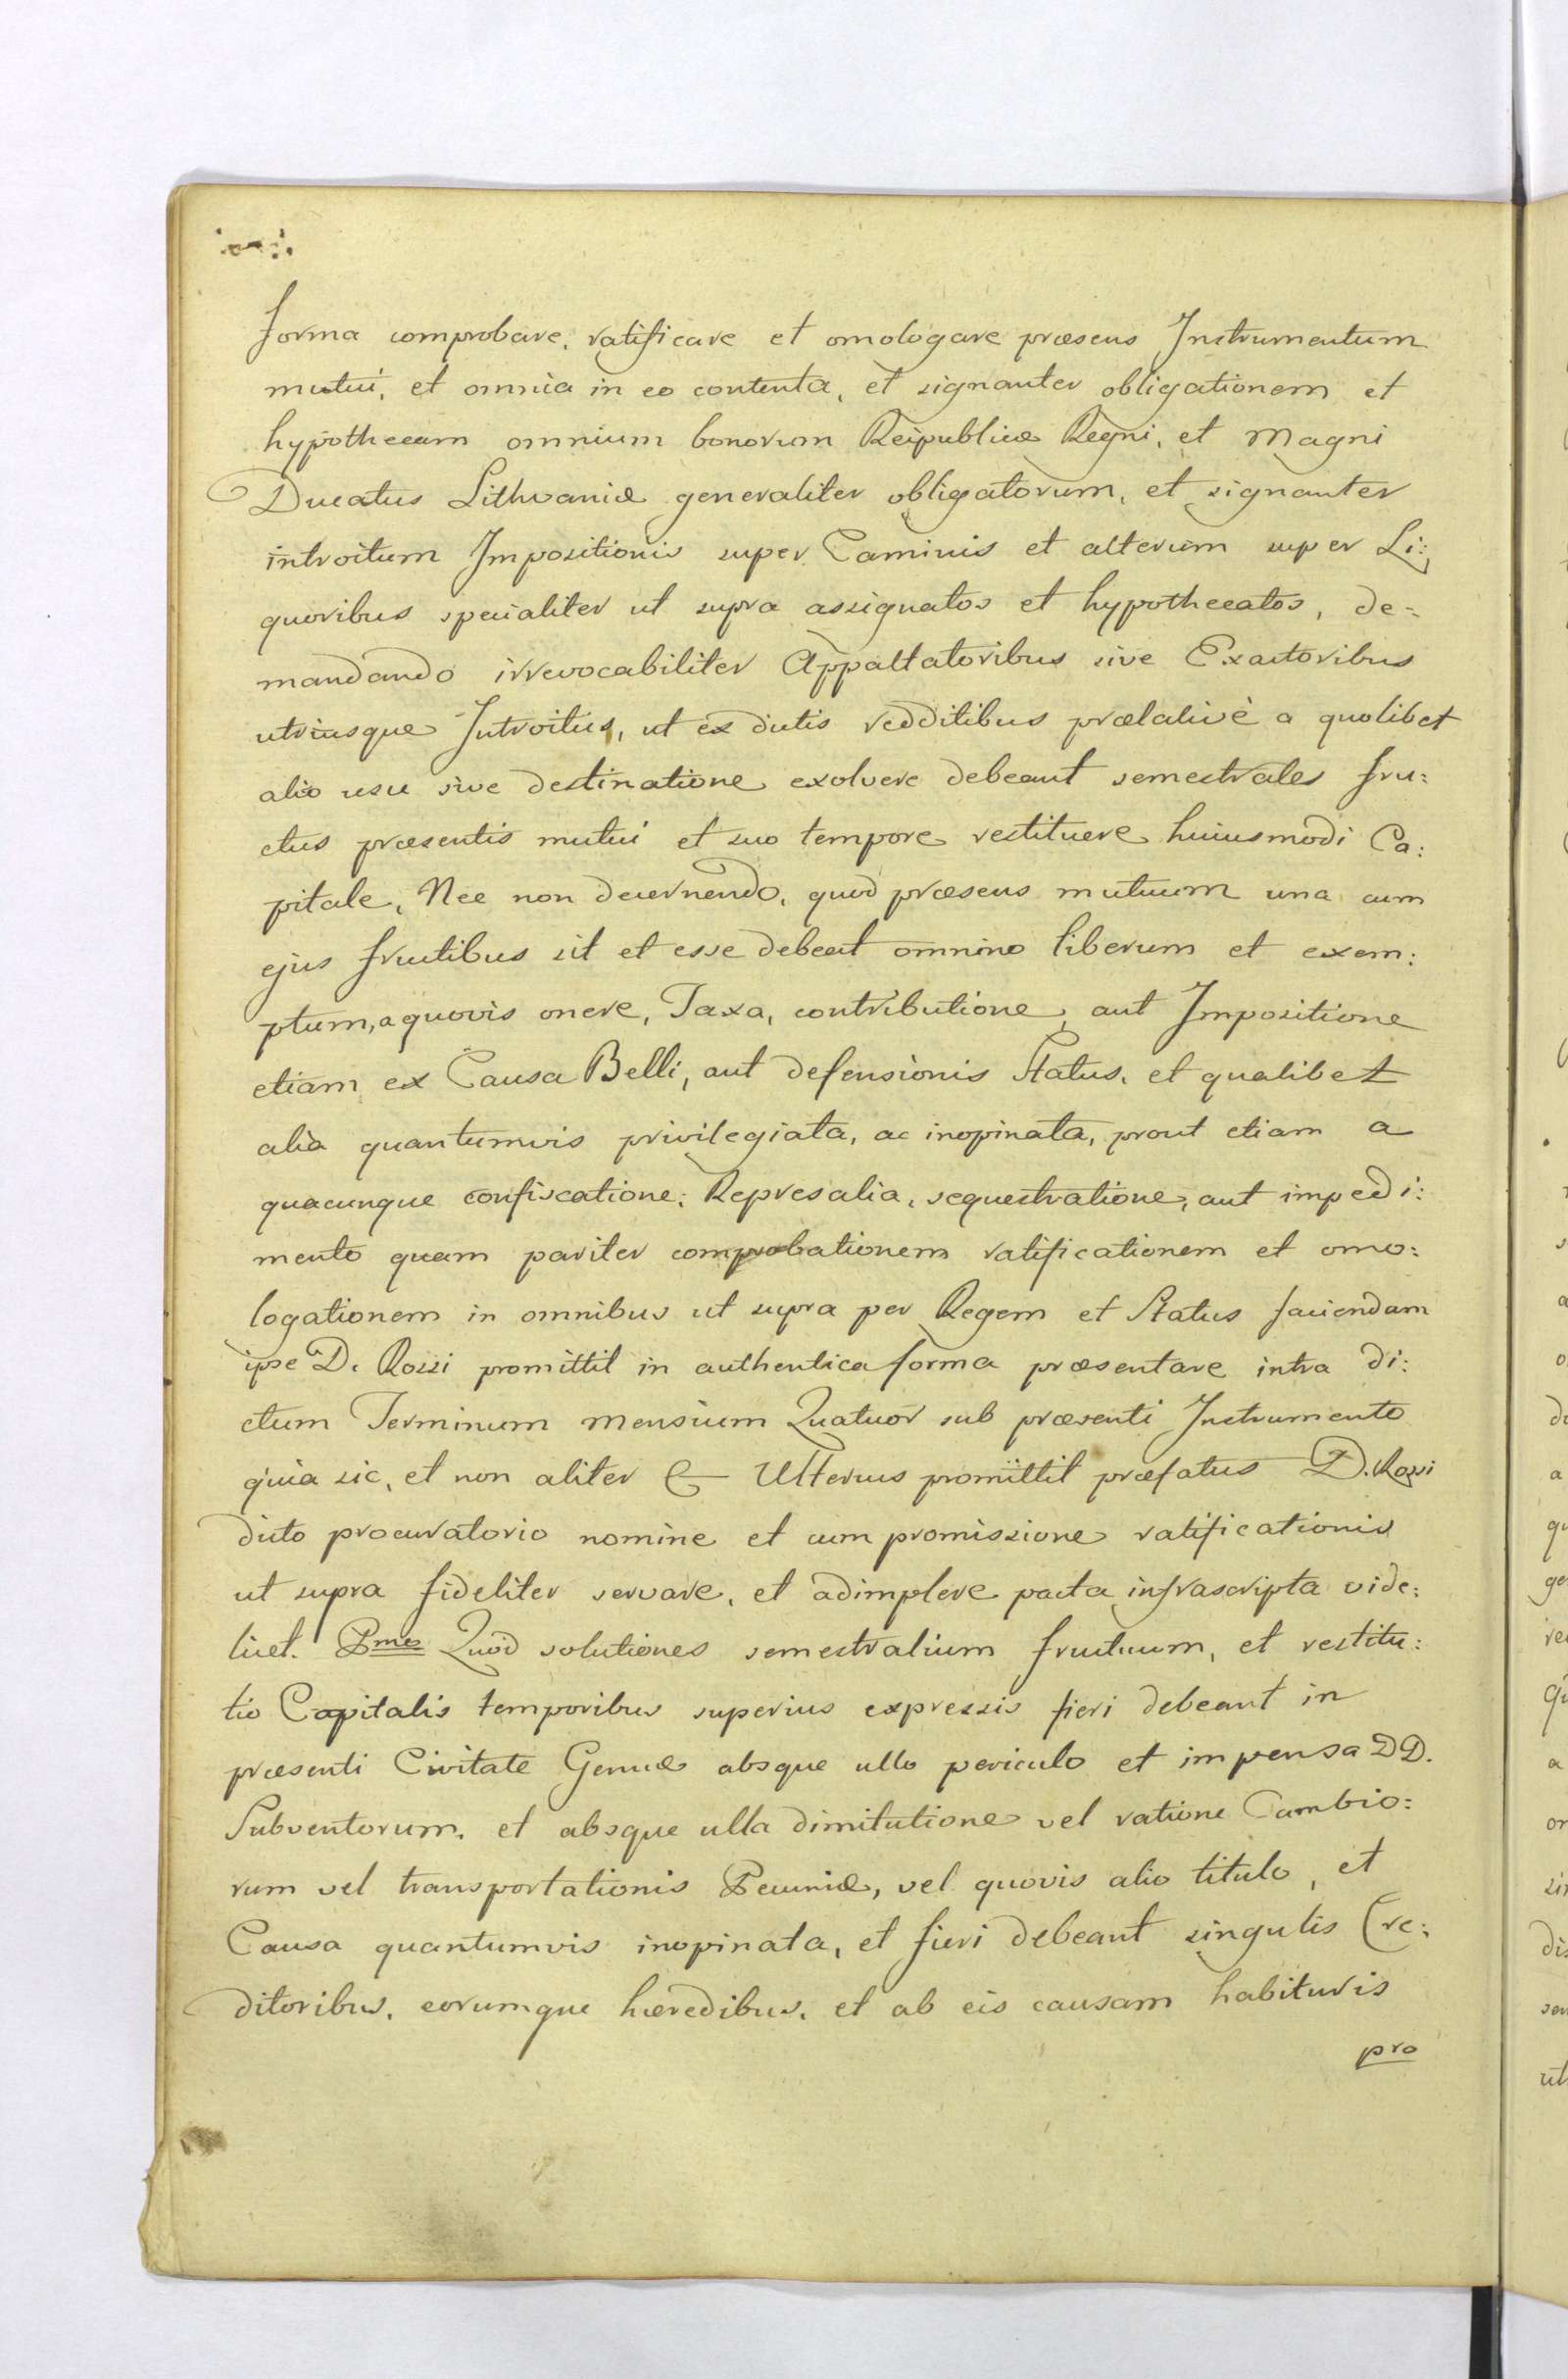 forma comprobare, ratificare et omologare præsens Instrumentum
mutui, et omnia in eo contenta, et signanter obligationem et
hypothecam omnium bonorum Reipublicæ Regni, et Magni
Ducatus Lithvaniæ generaliter obligatorum, et signanter
introitum Impositionis super Caminis et alterum super Li:
quoribus specialiter ut supra assignatos et hypothecatos, de=
mandando irrevocabiliter Appaltatoribus sive Exactoribus
utriusque Introitus, ut ex dictis redditibus prælativè a quolibet
alio usu sive destinatione exolvere debeant semestrales fru:
ctus præsentis mutui et suo tempore restituere huiusmodi Ca:
pitale, Nec non decernendo, quod præsens mutuum una cum
ejus fructibus sit et esse debeat omnino liberum et exem:
ptum, a quovis onere, Taxa, contributione, aut Impositione
etiam ex Causa Belli, aut defensionis Status, et qualibet
alia quantumvis privilegiata, ac inopinata, prout etiam a
quacunque confiscatione, Represalia, sequestratione, aut impedi:
mento quam pariter comprobationem ratificationem et omo:
logationem in omnibus ut supra per Regem et Status faciendam
ipse D. Rossi promittit in authentica forma præsentare intra di:
ctum Terminum mensium Quatuor sub præsenti Instrumento
quia sic, et non aliter & Ulterius promittit præfatus D. Rossi
dicto procuratorio nomine et cum promissione ratificationis
ut supra fideliter servare, et adimplere pacta infrascripta vide:
licet. Pmo Quod solutiones semestralium fructuum, et restitu:
tio Capitalis temporibus superius expressis fieri debeant in
præsenti Civitate Genuæ absque ullo periculo et impensa DD.
Subventorum, et absque ulla dimitutione vel ratione Cambio:
rum vel transportationis Pecuniæ, vel quovis alio titulo, et
Causa quantumvis inopinata, et fieri debeant singulis Cre:
ditoribus, eorumque hæredibus, et ab eis causam habituris
pro